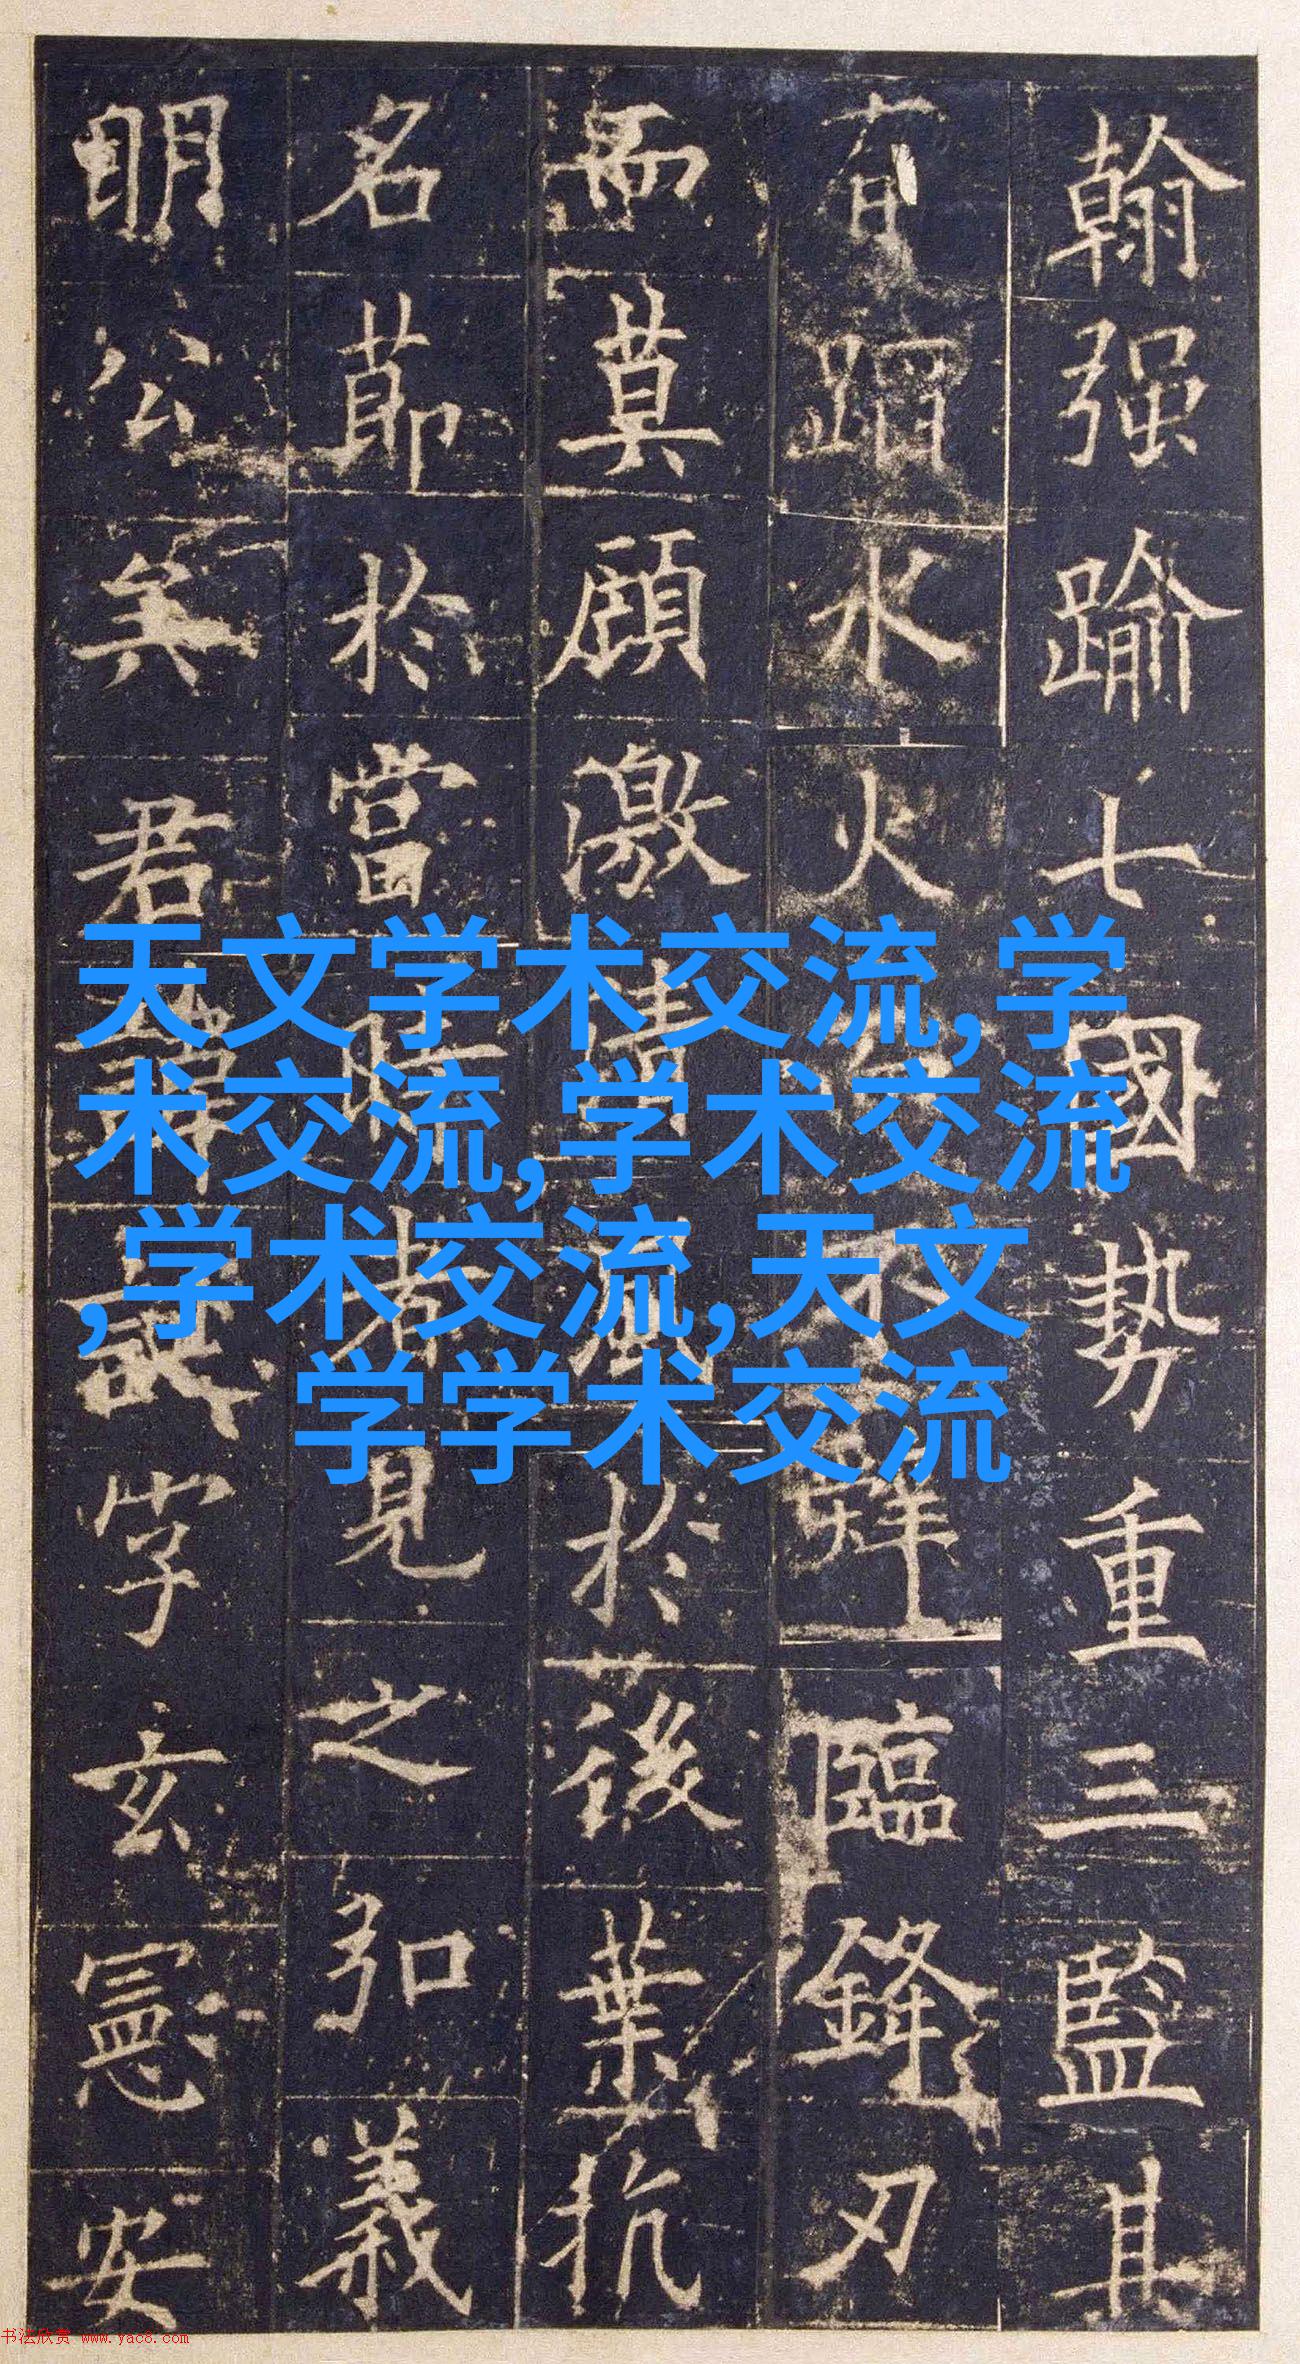 翰强踰七國势重三監其
有蹈水火不辞臨鋒刃
而莫顧激清風於後葉抗
名節於當時者見之弘義
明公矣君諱誕字玄憲安
天文学术交流,学
术交流,学术交流
,学术交流,天文
学学术交流
书法欣赏 www.yac8.com